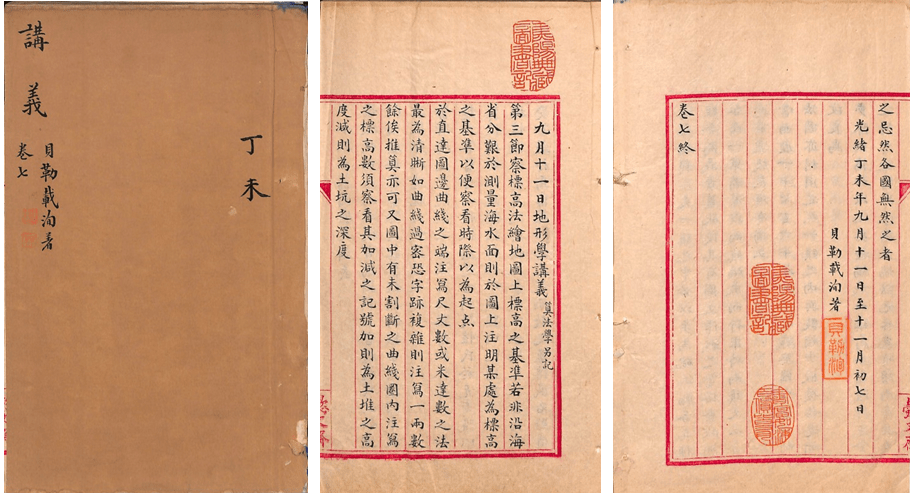 丁未
講義
貝勒載洵著
卷七
九月十一日地形學講義 算法學另記
第三節察標高法繪地圖上標高之基準若非沿海
省分艱於測量海水面則於圖上注明某處為標高
之基準以便察看時際以為起点
於直達圖邊曲綫之端注寫尺丈數或米達數之法
最為清晰如曲綫過密恐字跡複雜則注寫一兩數
餘俟推算亦可又圖中有未割斷之曲綫圈內注寫
之標高數須察看其加減之記號加則為土堆之高
度減則為土坑之深度
之忌然各國無然之者
光緒丁未年九月十一日至十一月初七日
貝勒載洵著
貝勒洵
卷七終